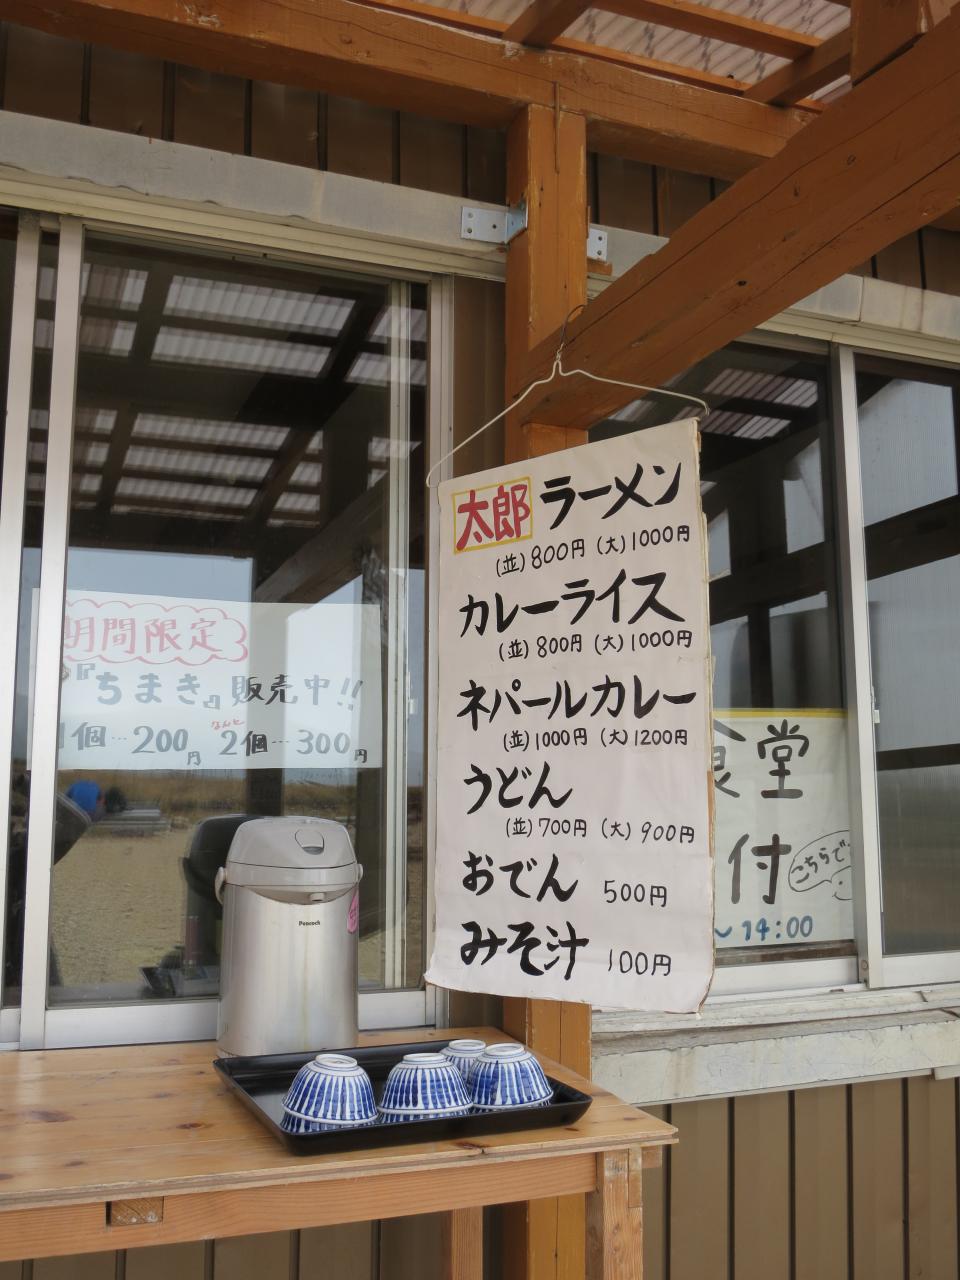 太郎ラーメン
(並)800円 (大)1000円
カレーライス
(並)800円 (大)1000円
ネパールカレー
(並)1000円 (大)1200円
うどん
(並)700円 (大)900円
おでん 500円
みそ汁 100円
期間限定
『ちまき』販売中!!
1個…200円 なんと2個…300円
食堂
付
こちらで
〜14:00
Peacock